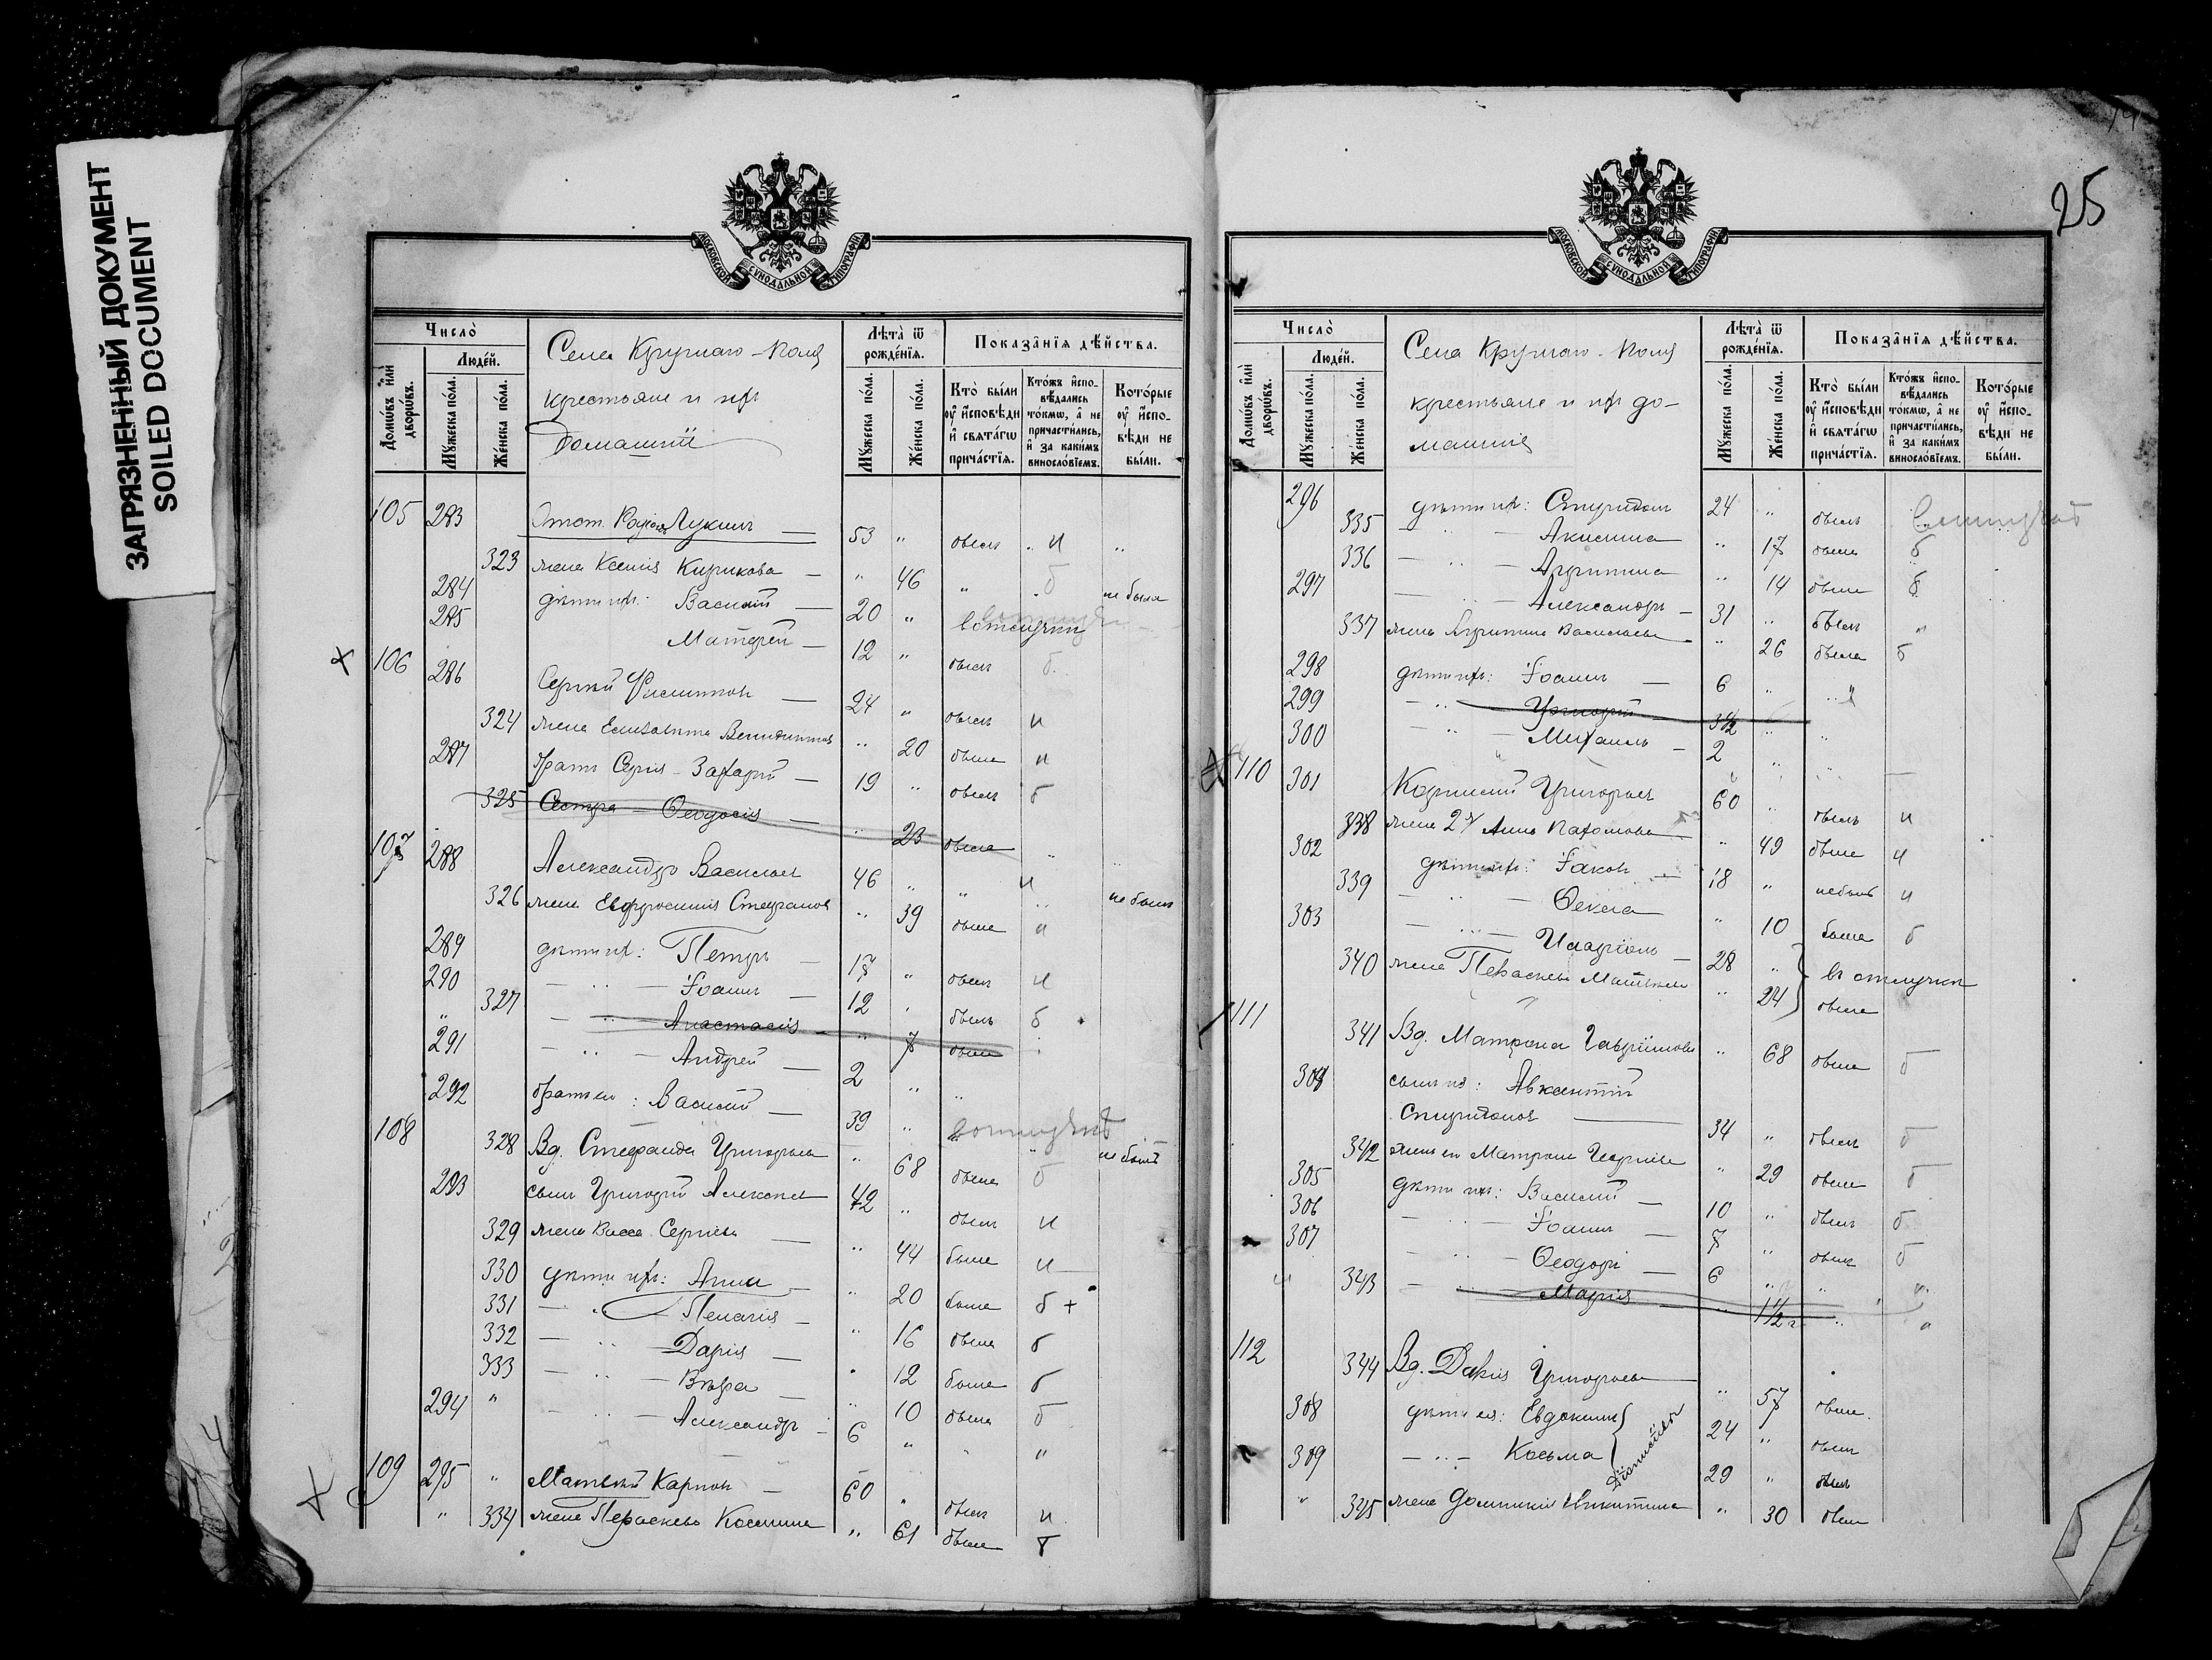 ЗАГРЯЗНЕННЫЙ ДОКУМЕНТ
SOILED DOCUMENT
МОСКОВСКОЙ СѴНОДАЛЬНОЙ ТИПОГРАФІИ
Число̀
Люде́й.
Домѡвъ и҆лѝ дворѡвъ.
Мꙋжеска по́ла.
Же́нска по́ла.
Села Круглаго-Поля
крестьяне и ихъ
домашніе
Лѣта̀ ѿ рожде́нїѧ.
Мꙋжеска по́ла.
Же́нска по́ла.
Показа̑нїѧ дѣ́йства.
Кто̀ бы́ли ᲂу҆ и҆сповѣди и҆ свѧта́гѡ прича́стїѧ.
Кто́жъ и҆спо-
вѣдались
то́кмѡ, а҆ не
причасти́лись,
и҆ за каки́мъ
винослов́їемъ.
Кото́рые ᲂу҆ и҆спо-
вѣди не бы́ли.
105 283 Лукинъ — 53 " былъ " и "
323 жена Ксенія Кирикова — " 46 " б не была
284 дѣти ихъ: Василій — 20 " въ отлучкѣ
285 Матѳей — 12 " былъ б
106 286 Сергій Филипповъ — 24 " былъ и
324 жена Елизавета " 20 была и
287 братъ Сергія - Захарій — 19 " былъ б
325 Сестра — Ѳеодосія — " 23 была "
107 288 Александръ Васильевъ 46 " " и не былъ
326 жена Евфросинія Стефанова " 39 была и
289 дѣти ихъ: Петръ — 17 " былъ и
290 — " — Іоаннъ — 12 " былъ б
327 — " — Анастасія — " 7 была
291 — " — Андрей — 2 " "
292 братъ ея: Василій — 39 " въ отлучкѣ
108 328 Вд. Стефанида Григорьева " 68 была б не былъ
293 сынъ Григорій Алексѣевъ 42 " былъ и
329 жена Васса Сергіева — " 44 была и
330 дѣти ихъ: Анна — " 20 была б +
331 — " — Пелагія — " 16 была б
332 — " — Дарія — " 12 была б
333 — " — Вѣра — " 10 была б
294 " — " — Александръ — 6 " " "
109 295 " Матвѣй Карповъ — 60 " былъ и
" 334 жена Параскева Косьмина " 61 была б
25
МОСКОВСКОЙ СѴНОДАЛЬНОЙ ТИПОГРАФІИ
Число̀
Люде́й.
Домѡвъ и҆лѝ дворѡвъ.
Мꙋжеска по́ла.
Же́нска по́ла.
Села Круглаго-Поля
крестьяне и ихъ до-
машніе
Лѣта̀ ѿ рожде́нїѧ.
Мꙋжеска по́ла.
Же́нска по́ла.
Показа̑нїѧ дѣ́йства.
Кто̀ бы́ли ᲂу҆ и҆сповѣди и҆ свѧта́гѡ прича́стїѧ.
Кто́жъ и҆спо-
вѣдались
то́кмѡ, а҆ не
причасти́лись,
и҆ за каки́мъ
винослов́їемъ.
Кото́рые ᲂу҆ и҆спо-
вѣди не бы́ли.
296 дѣти ихъ: Спиридонъ 24 " былъ
335 — " — Акилина " 17 была б
336 — " — Агрипина " 14 была б
297 — " — Александръ — 31 " былъ "
337 жена Агрипина Васильева " 26 была б
298 дѣти ихъ: Іоаннъ — 6 " "
299 — " — Григорій — 3½ " "
300 — " — Михаилъ — 2 " "
110 301 Корнилій Григорьевъ 60 " былъ и
338 жена 2я Анна Пахомова " 49 была и
302 дѣти ихъ: Іаковъ — 18 " не былъ и
339 — " — Ѳекла " 10 была б
303 — " — Иларіонъ — 28 " въ отлучкѣ
340 жена Параскева Матвѣева " 24 была
111 341 Вд. Матрона Гавріилова " 68 была б
304 сынъ ея: Авксентій
Спиридоновъ — 34 " былъ б
342 жена ея Матрона " 29 была б
305 дѣти ихъ: Василій — 10 " былъ б
306 — " — Іоаннъ — 7 " былъ б
307 — " — Ѳеодоръ — 6 " " и
343 — " — Марія — " 1½ г. " "
112 344 Вд. Дарія Григорьева — " 57 была
308 дѣти ея: Евдокимъ 24 " былъ
309 — " — Косьма 29 " былъ
" 345 жена Домникія Никитина " 30 была